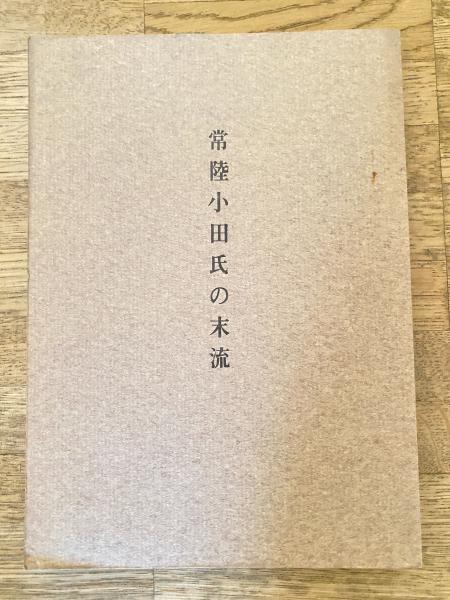 常陸小田氏の末流